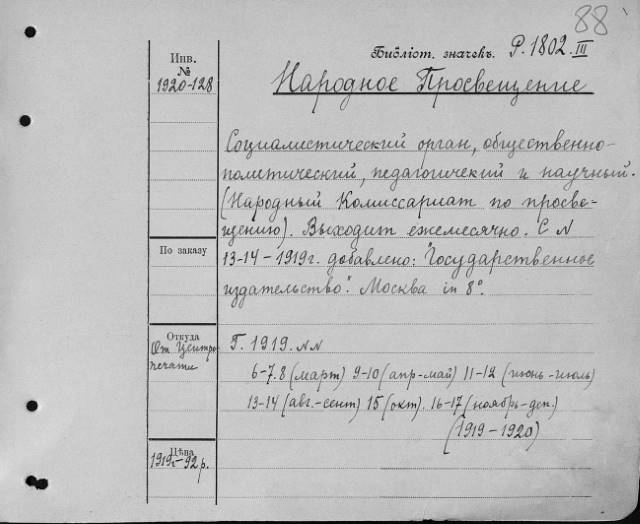 88
Библіот. значекъ. Р. 1802. III
Инв.
№
1920-128
Народное Просвещение
Социалистический орган, общественно-
политический, педагогичекий и научный.
(Народный Комиссариат по просве-
щению). Выходит ежемесячно. С N
По заказу
13-14-1919г. добавлено: "Государственное
издательство". Москва in 8°.
Откуда
От Центро
печати
Г. 1919. NN
6-7.8 (март) 9-10 (апр-май) 11-12 (июнь-июль)
13-14 (авг.-сент) 15 (окт). 16-17 (ноябрь-деп.)
(1919-1920)
Цѣна
1919г-92 р.